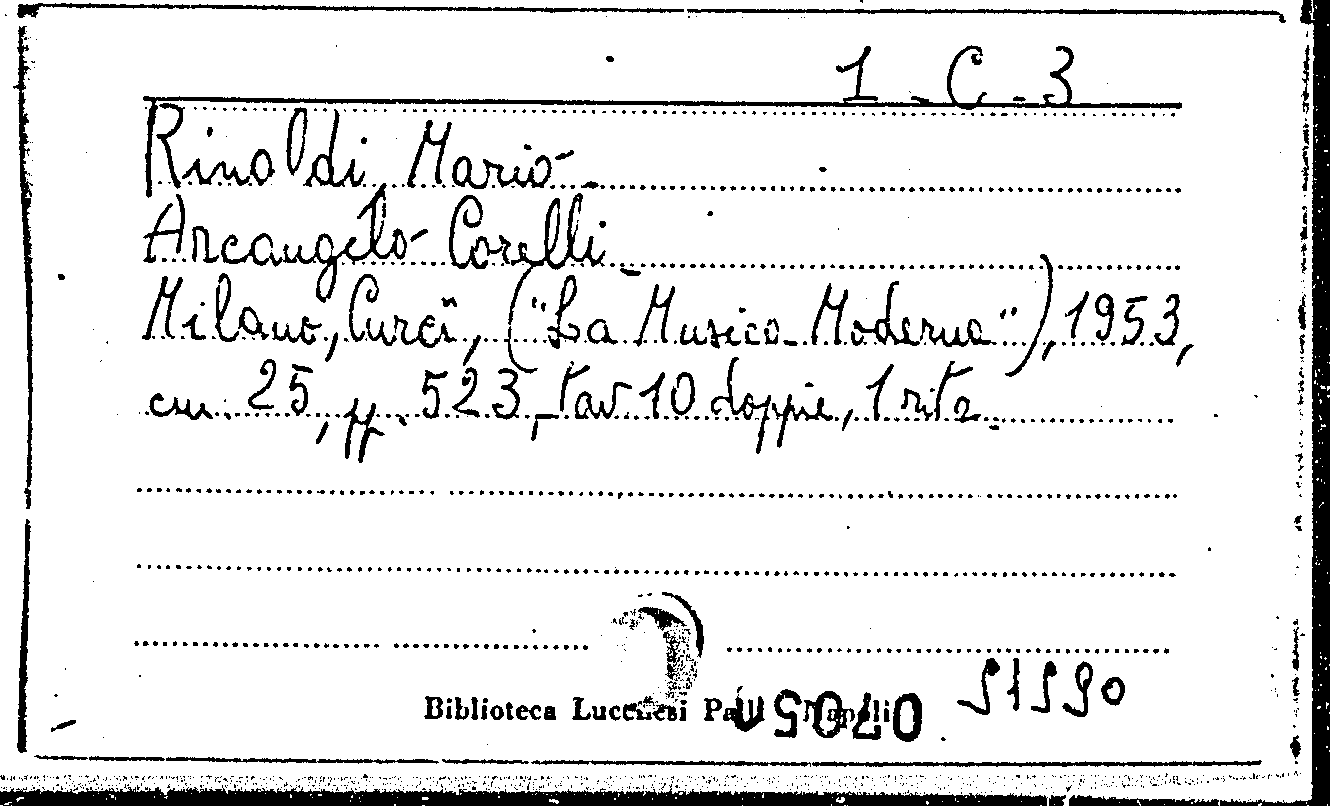 1 - C - 3
Rinaldi Mario -
Arcangelo Corelli -
Milano, Curci, ("La Musica Moderna"), 1953,
cm. 25, pp. 523, tav 10 doppie, 1 ritr.
Biblioteca Lucchesi Palli Napoli